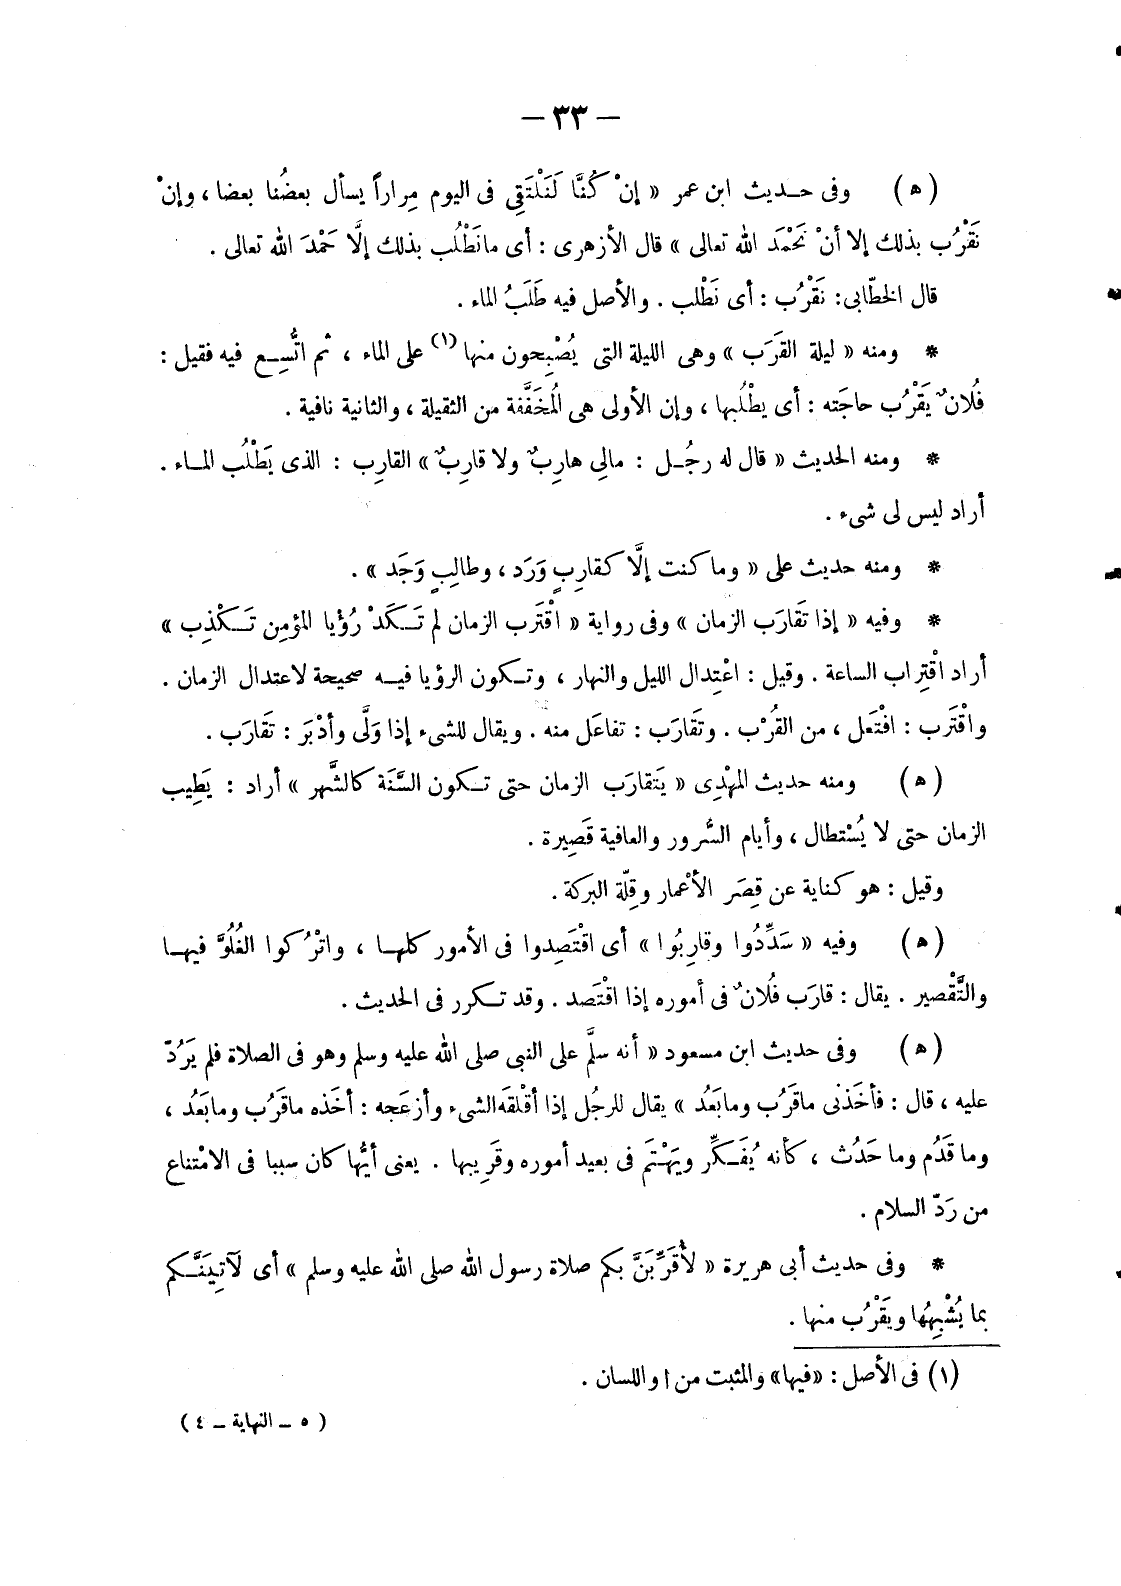 — ٣٣ —
( ﻫ ) وفى حـديث ابن عمر « إنْ كُنَّا لَنَلْتَقِى فى اليوم مِراراً يسأل بعضُنا بعضا ، وإنْ
نَقْرُب بذلك إلا أنْ نَحْمَد الله تعالى » قال الأزهرى : أى مانَطْلُب بذلك إلَّا حَمْدَ الله تعالى .
قال الخطّابى: نَقْرُب : أى نَطْلب . والأصل فيه طَلَبُ الماء .
* ومنه « ليلة القَرَب » وهى الليلة التى يُصْبِحون منها (١) على الماء ، ثم اتُّسِـع فيه فقيل :
فُلانٌ يَقْرُب حاجَته : أى يطْلُبها ، وإن الأولى هى المُخَفَّفة من الثقيلة ، والثانية نافية .
* ومنه الحديث « قال له رجُـل : مالِى هارِبٌ ولا قارِبٌ » القارِب : الذى يَطْلُب المـاء .
أراد ليس لى شىء .
* ومنه حديث على « وما كنت إلَّا كقارِبٍ وَرَد ، وطالِبٍ وَجَد » .
* وفيه « إذا تَقارَب الزمان » وفى رواية « اقْتَرب الزمان لم تَـكَدْ رُؤيا المؤمِن تَـكْذِب »
أراد اقْتِراب الساعة . وقيل : اعْتِدال الليل والنهار ، وتـكون الرؤيا فيـه صحيحة لاعتدال الزمان .
واقْتَرب : افْتَعل ، من القُرْب . وتَقارَب : تفاعَل منه . ويقال للشىء إذا وَلَّى وأدْبَر : تَقارَب .
( ﻫ ) ومنه حديث المهْدِى « يَتَقارَب الزمان حتى تـكون السَّنَة كالشَّهر » أراد : يَطِيب
الزمان حتى لا يُسْتطال ، وأيام السُّرور والعافية قَصِيرة .
وقيل : هو كناية عن قِصَر الأعْمار وقِلّة البركة .
( ﻫ ) وفيه « سَدِّدُوا وقارِبُوا » أى اقْتَصِدوا فى الأمور كلهـا ، واتْرُكوا الغُلُوَّ فيهـا
والتَّقْصير . يقال : قارَب فُلانٌ فى أموره إذا اقْتَصد . وقد تـكرر فى الحديث .
( ﻫ ) وفى حديث ابن مسعود « أنه سلَّم على النبى صلى الله عليه وسلم وهو فى الصلاة فلم يَرُدّ
عليه ، قال : فأخَذنى ماقَرُب ومابَعُد » يقال للرجُل إذا أقْلقَه الشىء وأزعَجه : أخَذه ماقَرُب ومابَعُد ،
وما قَدُم وما حَدُث ، كأنه يُفَـكِّر ويَهْتَم فى بعيد أموره وقَرِيبها . يعنى أيُّها كان سببا فى الامْتناع
من رَدّ السلام .
* وفى حديث أبى هريرة « لأُقَرِّبَنَّ بكم صلاة رسول الله صلى الله عليه وسلم » أى لَآتِيَنَّـكم
بما يُشْبِهُها ويَقْرُب منها .
(١) فى الأصل : «فيها» والمثبت من ا واللسان .
( ٥ ــ النهاية ــ ٤ )